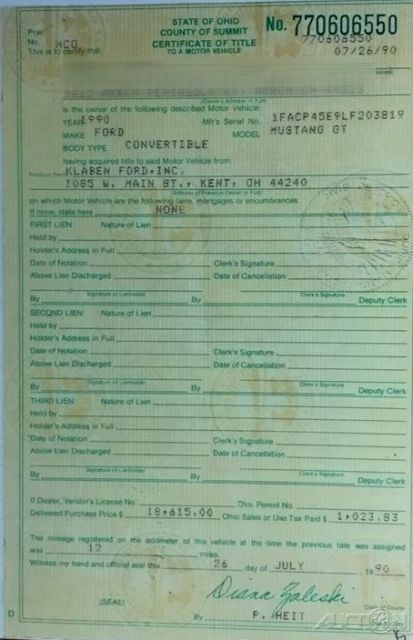 STATE OF OHIO
COUNTY OF SUMMIT
CERTIFICATE OF TITLE
TO A MOTOR VEHICLE
No. 770606550
770606550
07/26/90
Prev
No. MCO
This is to certify that
Issued
AKRON PENINSULA RD. AKRON OH 44313
(Owner's Address in Full)
is the owner of the following described Motor Vehicle:
YEAR 1990 Mfr's Serial No. 1FACP45E9LF203819
MAKE FORD MODEL MUSTANG GT
BODY TYPE CONVERTIBLE
having acquired title to said Motor Vehicle from:
KLABEN FORD, INC.
Previous Owner
1085 W. MAIN ST., KENT, OH 44240
(Address of Previous Owner in Full)
on which Motor Vehicle are the following liens, mortgages or encumbrances
If none, state here NONE
FIRST LIEN: Nature of Lien
Held by
Holder's Address in Full
Date of Notation Clerk's Signature
Above Lien Discharged Date of Cancellation
By Signature of Lienholder By Clerk's Signature Deputy Clerk
SECOND LIEN: Nature of Lien
Held by
Holder's Address in Full
Date of Notation Clerk's Signature
Above Lien Discharged Date of Cancellation
By Signature of Lienholder By Clerk's Signature Deputy Clerk
THIRD LIEN: Nature of Lien
Held by
Holder's Address in Full
Date of Notation Clerk's Signature
Above Lien Discharged Date of Cancellation
By Signature of Lienholder By Clerk's Signature Deputy Clerk
If Dealer, Vendor's License No. Dlrs. Permit No.
Delivered Purchase Price $ 18,615.00 Ohio Sales or Use Tax Paid $ 1,023.83
The mileage registered on the odometer of this vehicle at the time the previous title was assigned
was 12 miles.
Witness my hand and official seal this 26 day of JULY 1990
Diana Zaleski
(SEAL) Clerk of Courts
D By P. HEIT
AUCTION